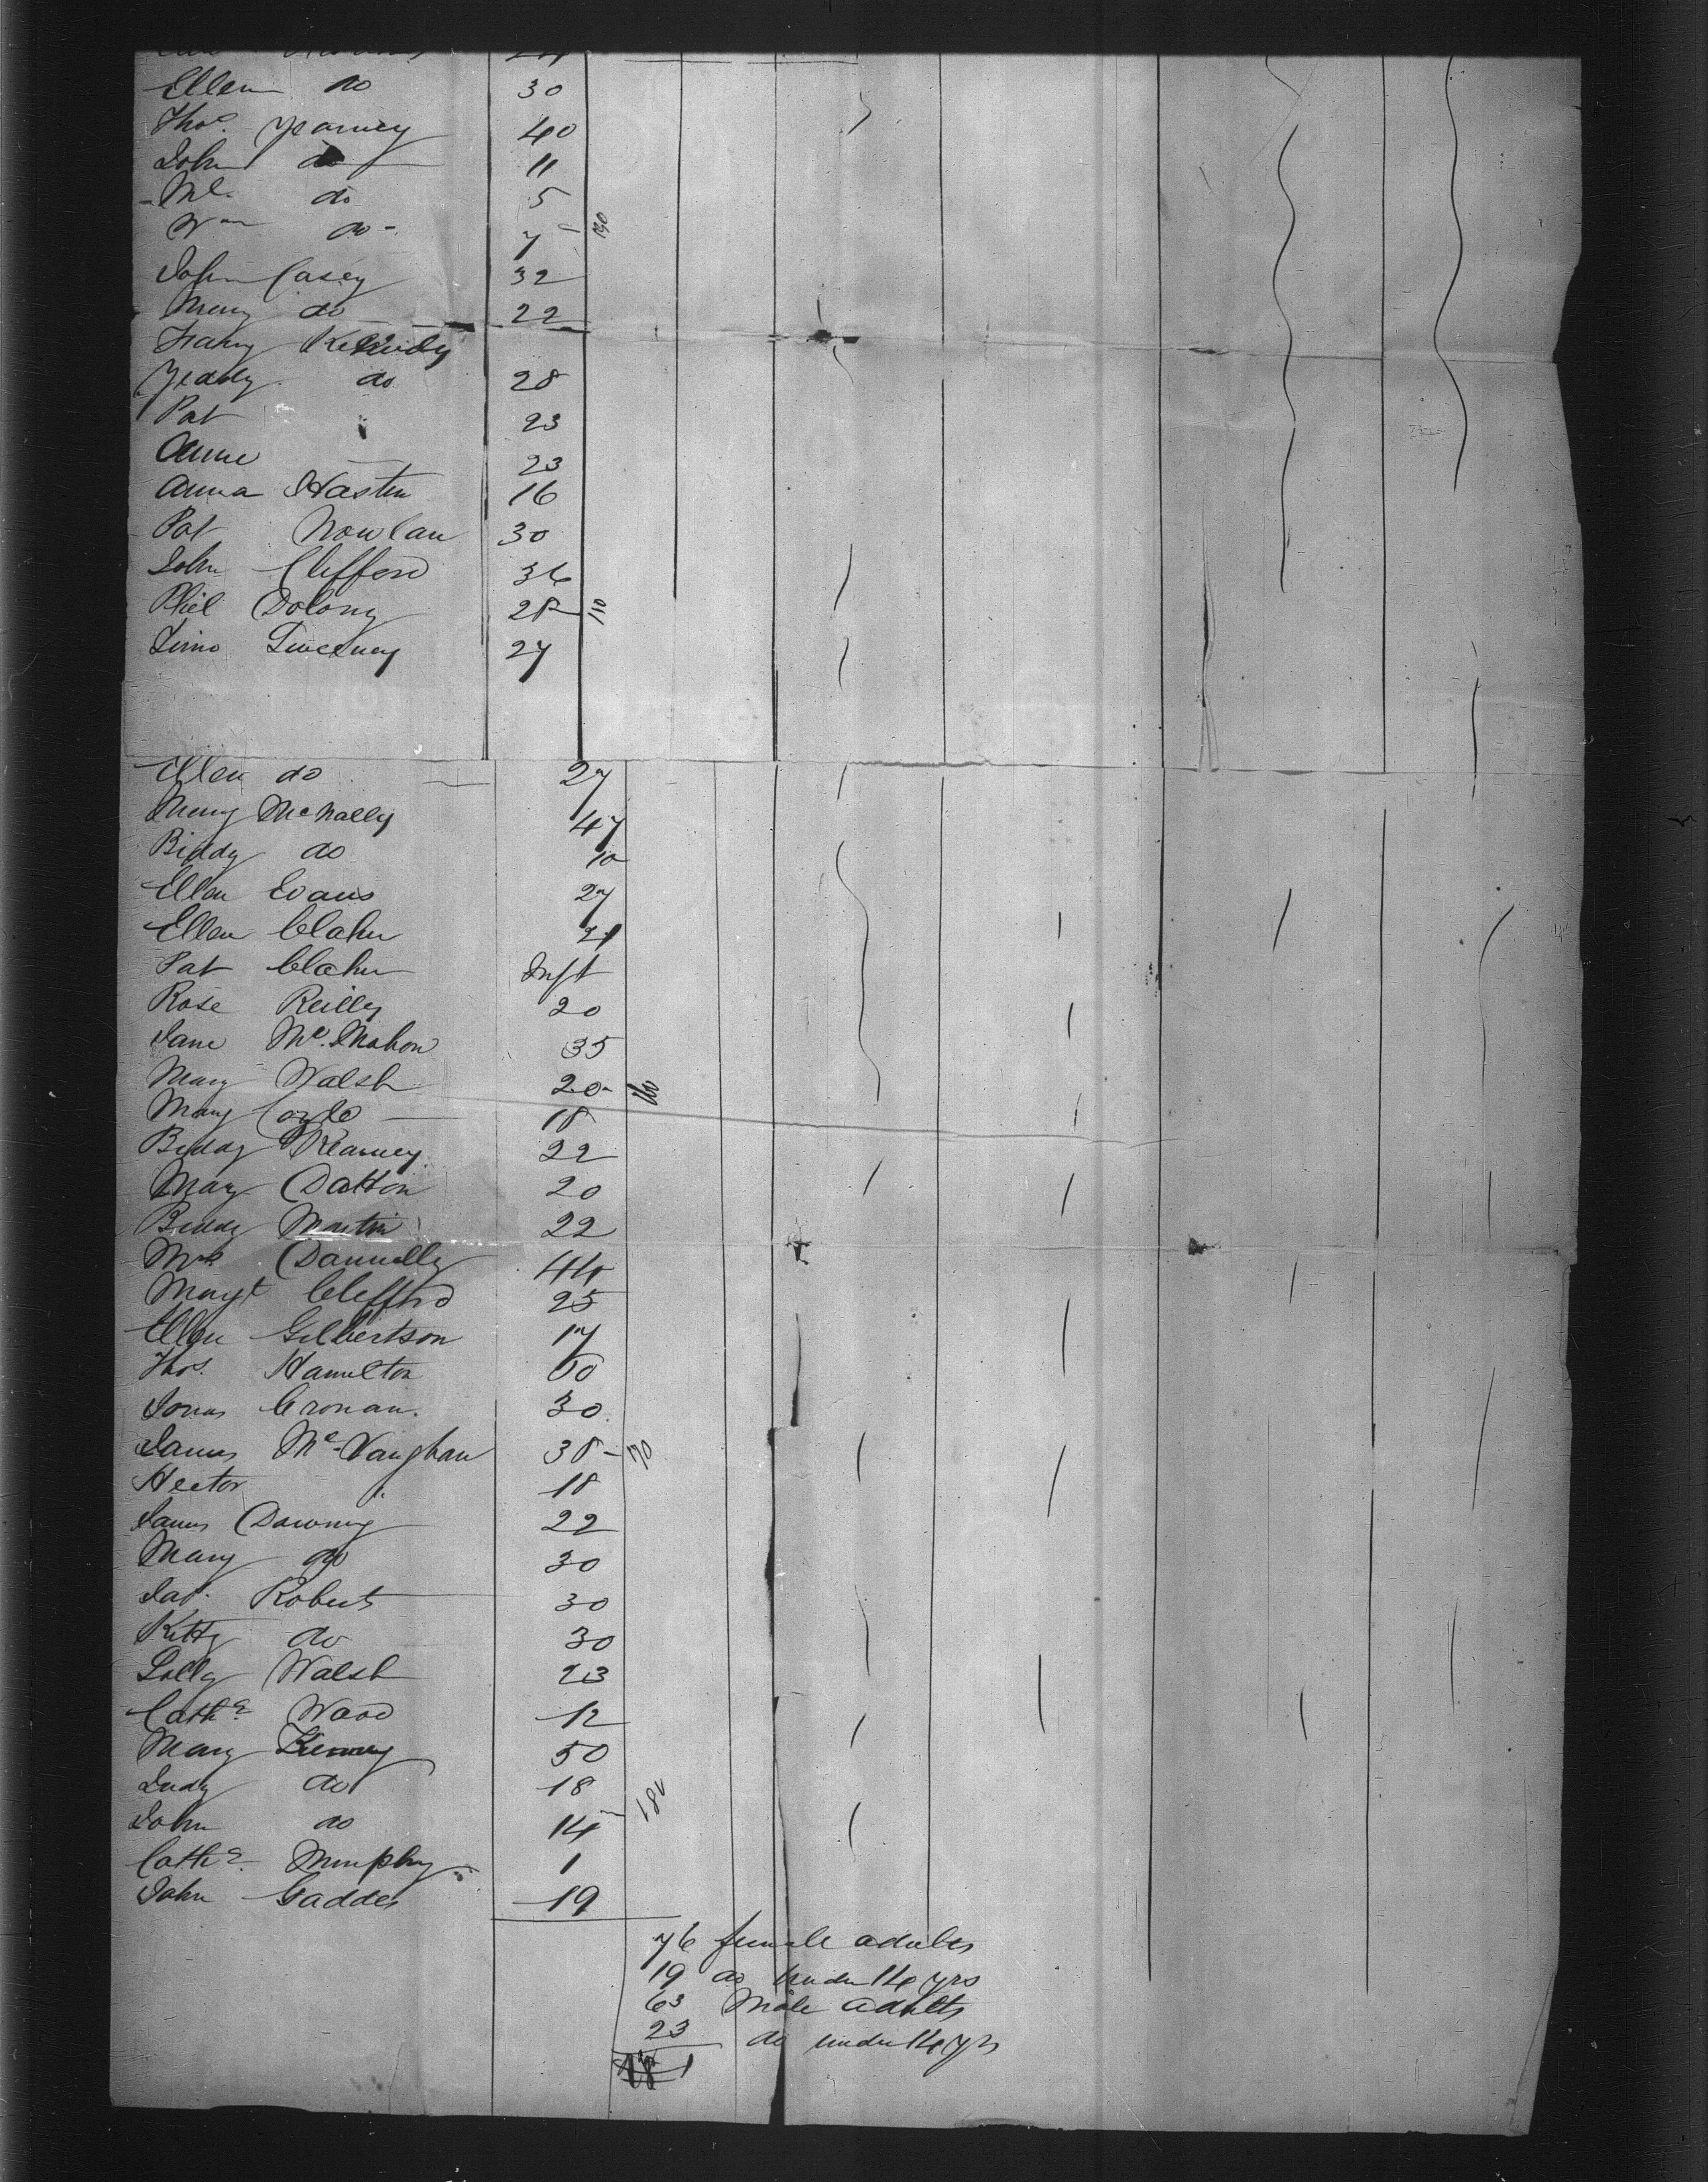 Ellen do 30
Thos. Yearney 40
John do 11
Ml. do 5
Wm do - 7 - 150
John Casey 32
Mary do 22
Fanny Kennedy
Yeddy do 28
Pat " 23
Anne 23
Anna Hasten 16
Pat Nowlan 30
John Clifford 36
Phil Dolony 28 - 110
Simo Sweeney 27
Ellen do 27
Mary McNally 47
Biddy do 10
Ellen Evans 27
Ellen Claher 21
Pat Claher Inft
Rose Reilly 20
Jane Mc.Mahon 35
Mary Walsh 20 - 160
Mary Coyle 18
Biddy Kearney 22
Mary Dalton 20
Biddy Martin 22
Mrs Dannelly 44
Margt Clifford 25
Ellen Gilbertson 17
Thos. Hamelton 60
Jonas Cronan. 30
James Mc.Vaughan 38 - 170
Hector " 18
James Downey 22
Mary do 30
Jas. Roberts 30
Kitty do 30
Solly Walsh 23
Cathe. Wood 12
Mary 50
Judy do 18
John do 14 - 180
Cathe. Murphy 1
John Gaddes 19
76 female adults
19 do under 14 yrs
63 Male adults
23 do under 14 yrs
181